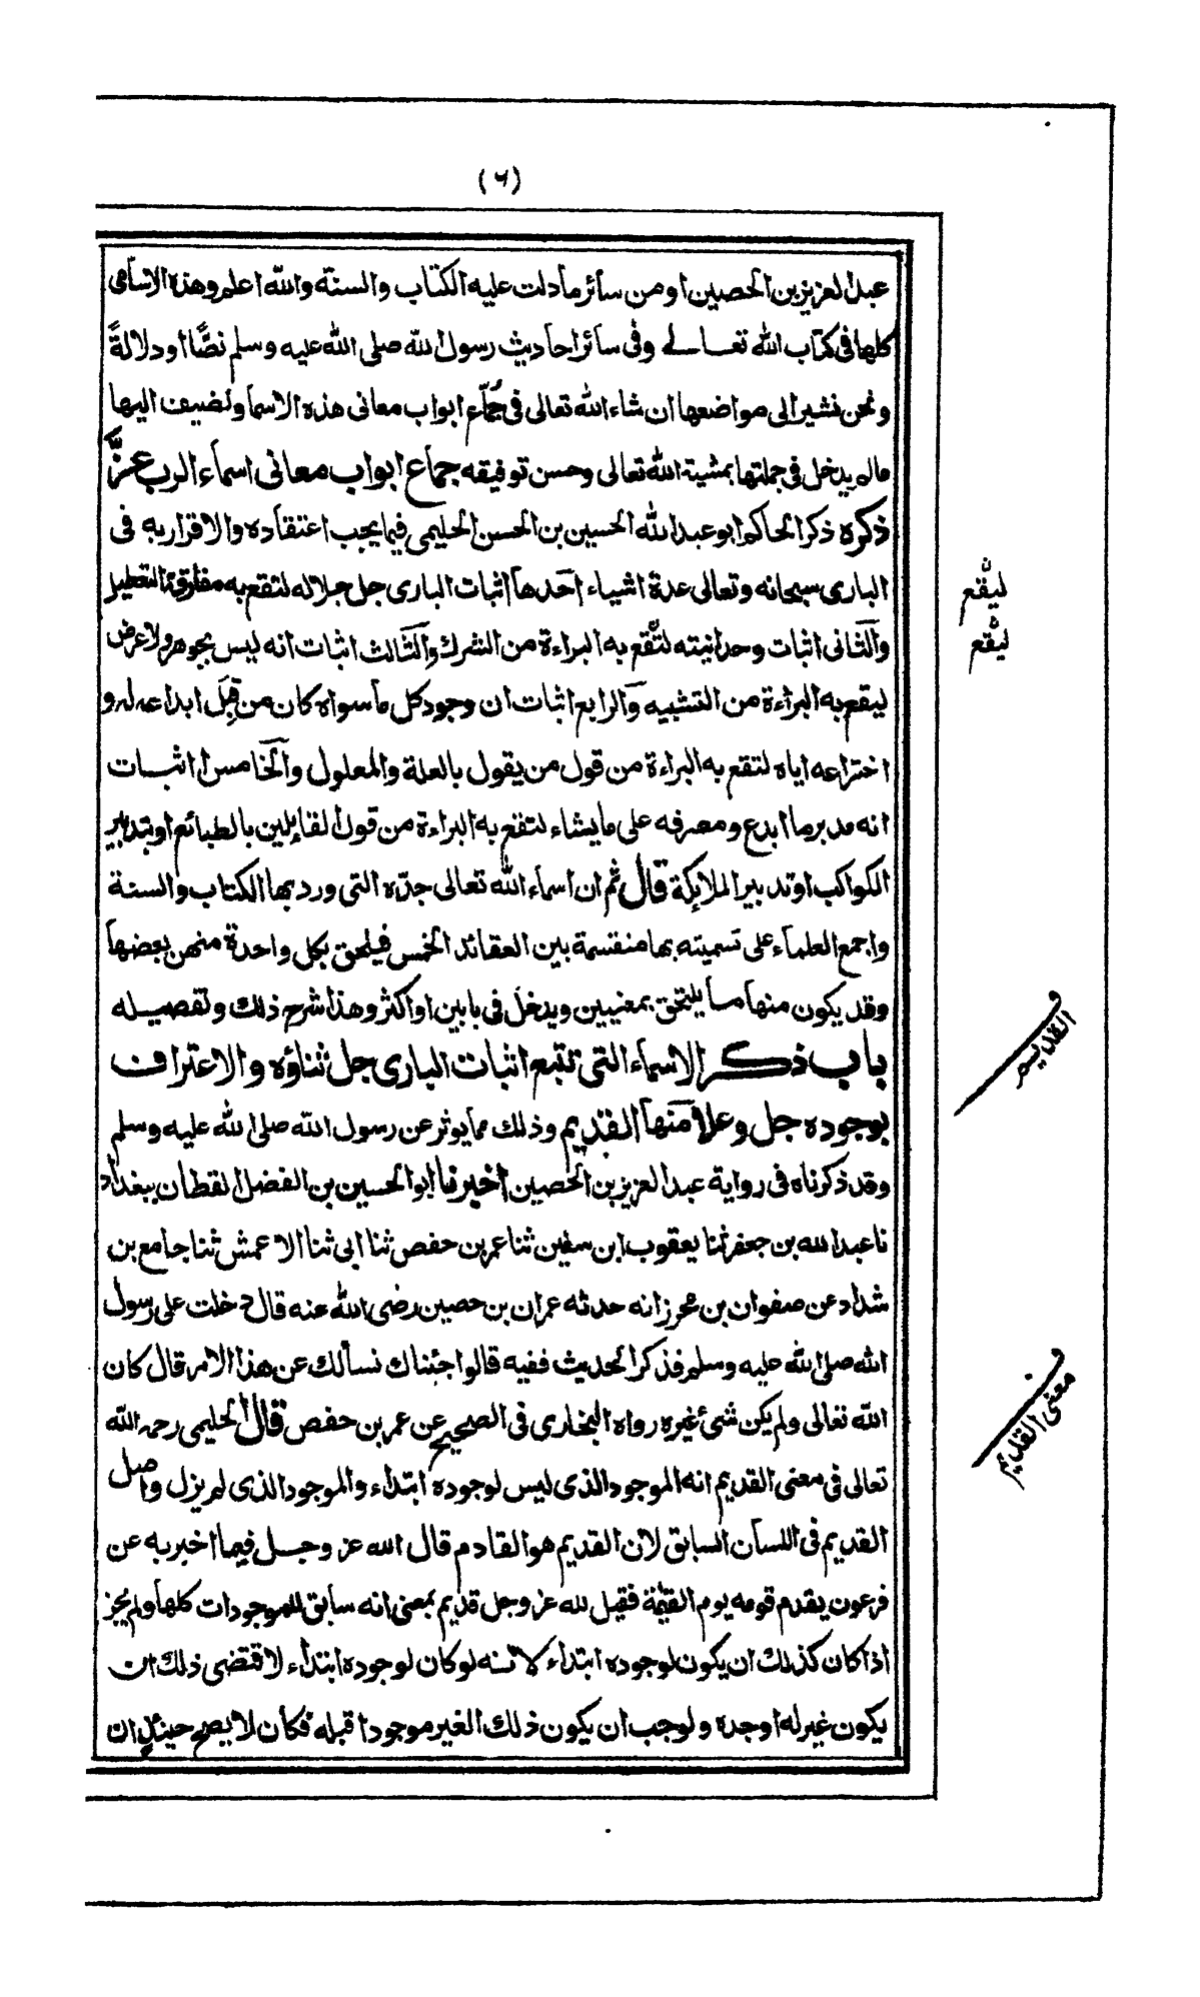 (٦)
عبد العزيز بن الحصين او من سائر ما دلت عليه الكتاب والسنة والله اعلم وهذه الاسامى
كلها فى كتاب الله تعالى وفى سائر احاديث رسول الله صلى الله عليه وسلم نصًّا او دلالةً
ونحن نشير الى مواضعها ان شاء الله تعالى فى جُمّاع ابواب معانى هذه الاسما ونضيف اليها
ماله يدخل فى جملتها بمشية الله تعالى وحسن توفيقه جماع ابواب معانى اسماء الرب عزَّ
ذكره ذكر الحاكم ابو عبد الله الحسين بن الحسن الحليمى فيما يجب اعتقاده والاقرار به فى
البارى سبحانه وتعالى عدة اشياء احدها اثبات البارى جل جلاله لتقع به مفارقة التعطيل
والثانى اثبات وحدانيته لتقع به البراءة من الشرك والثالث اثبات انه ليس بجوهر ولا عرض
ليقع به البراءة من التشبيه والرابع اثبات ان وجود كل ما سواه كان من قِبَل ابداعه له و
اختراعه اياه لتقع به البراءة من قول من يقول بالعلة والمعلول والخامس اثبات
انه مدبر ما ابدع ومصرفه على ما يشاء لتقع به البراءة من قول القائلين بالطبائع او بتدبير
الكواكب او تدبير الملائكة قال ثم ان اسماء الله تعالى جدّه التى ورد بها الكتاب والسنة
واجمع العلماء على تسميته بها منقسمة بين العقائد الخمس فيلحق بكل واحدة منهن بعضها
وقد يكون منها ما يلتحق بمعنيين ويدخل فى بابين او اكثر وهذا شرح ذلك وتفصيله
باب ذكر الاسماء التى تتبع اثبات البارى جل ثناؤه والاعتراف
بوجوده جل وعلا منها القديم وذلك مما يوثر عن رسول الله صلى الله عليه وسلم
وقد ذكرناه فى رواية عبد العزيز بن الحصين اخبرنا ابو الحسين بن الفضل القطان ببغداد
نا عبد الله بن جعفر ثنا يعقوب ابن سفين ثنا عمر بن حفص ثنا ابى ثنا الاعمش ثنا جامع بن
شداد عن صفوان بن محرز انه حدثه عمران بن حصين رضى الله عنه قال دخلت على رسول
الله صلى الله عليه وسلم فذكر الحديث ففيه قالوا جئناك نسألك عن هذا الامر قال كان
الله تعالى ولم يكن شئ غيره رواه البخارى فى الصحيح عن عمر بن حفص قال الحليمى رحمه الله
تعالى فى معنى القديم انه الموجود الذى ليس لوجوده ابتداء والموجود الذى لم يزل واصل
القديم فى اللسان السابق لان القديم هو القادم قال الله عز وجل فيما اخبر به عن
فرعون يقدم قومه يوم القيمة فقيل لله عز وجل قديم بمعنى انه سابق للموجودات كلها ولم يجز
اذا كان كذلك ان يكون لوجوده ابتداء لانه لو كان لوجوده ابتداء لاقتضى ذلك ان
يكون غير له اوجده ولوجب ان يكون ذلك الغير موجودا قبله فكان لا يصح حينئذ ان
ليقع
ليقع
القديم
معنى القديم